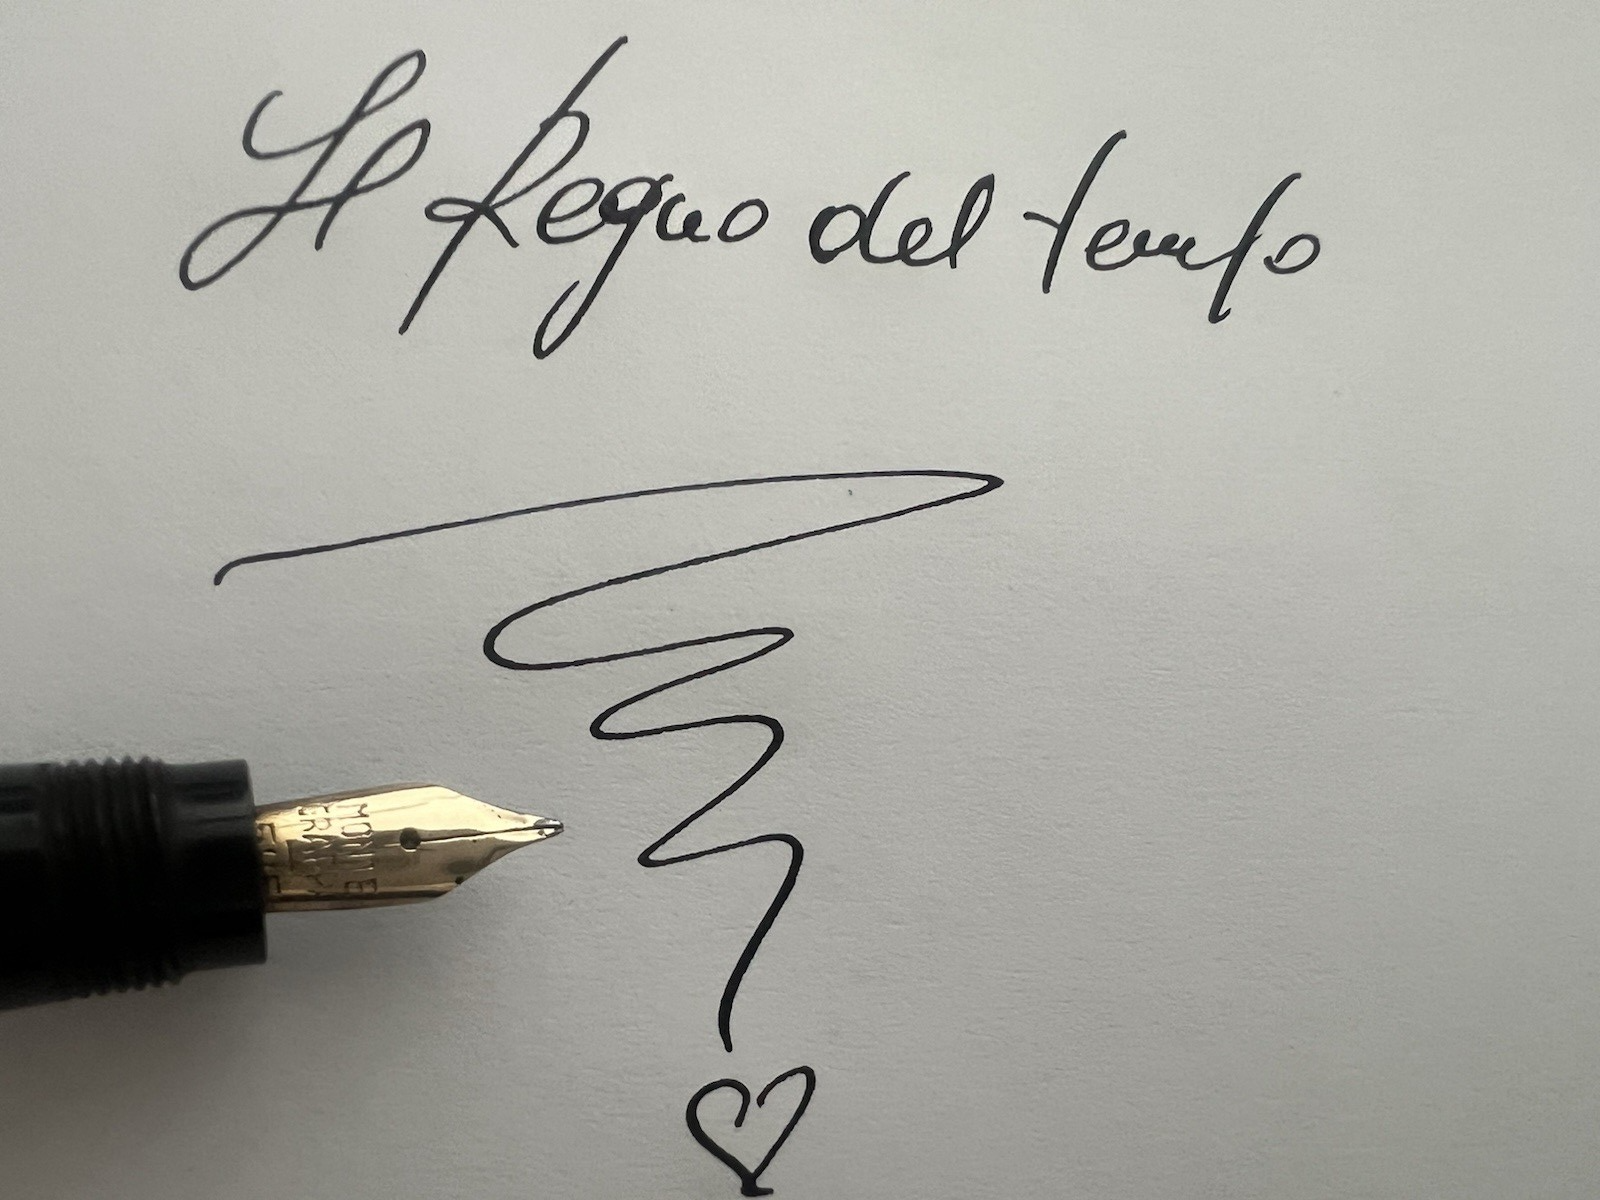 Il Regno del tempo
MONTE
GRAPPA